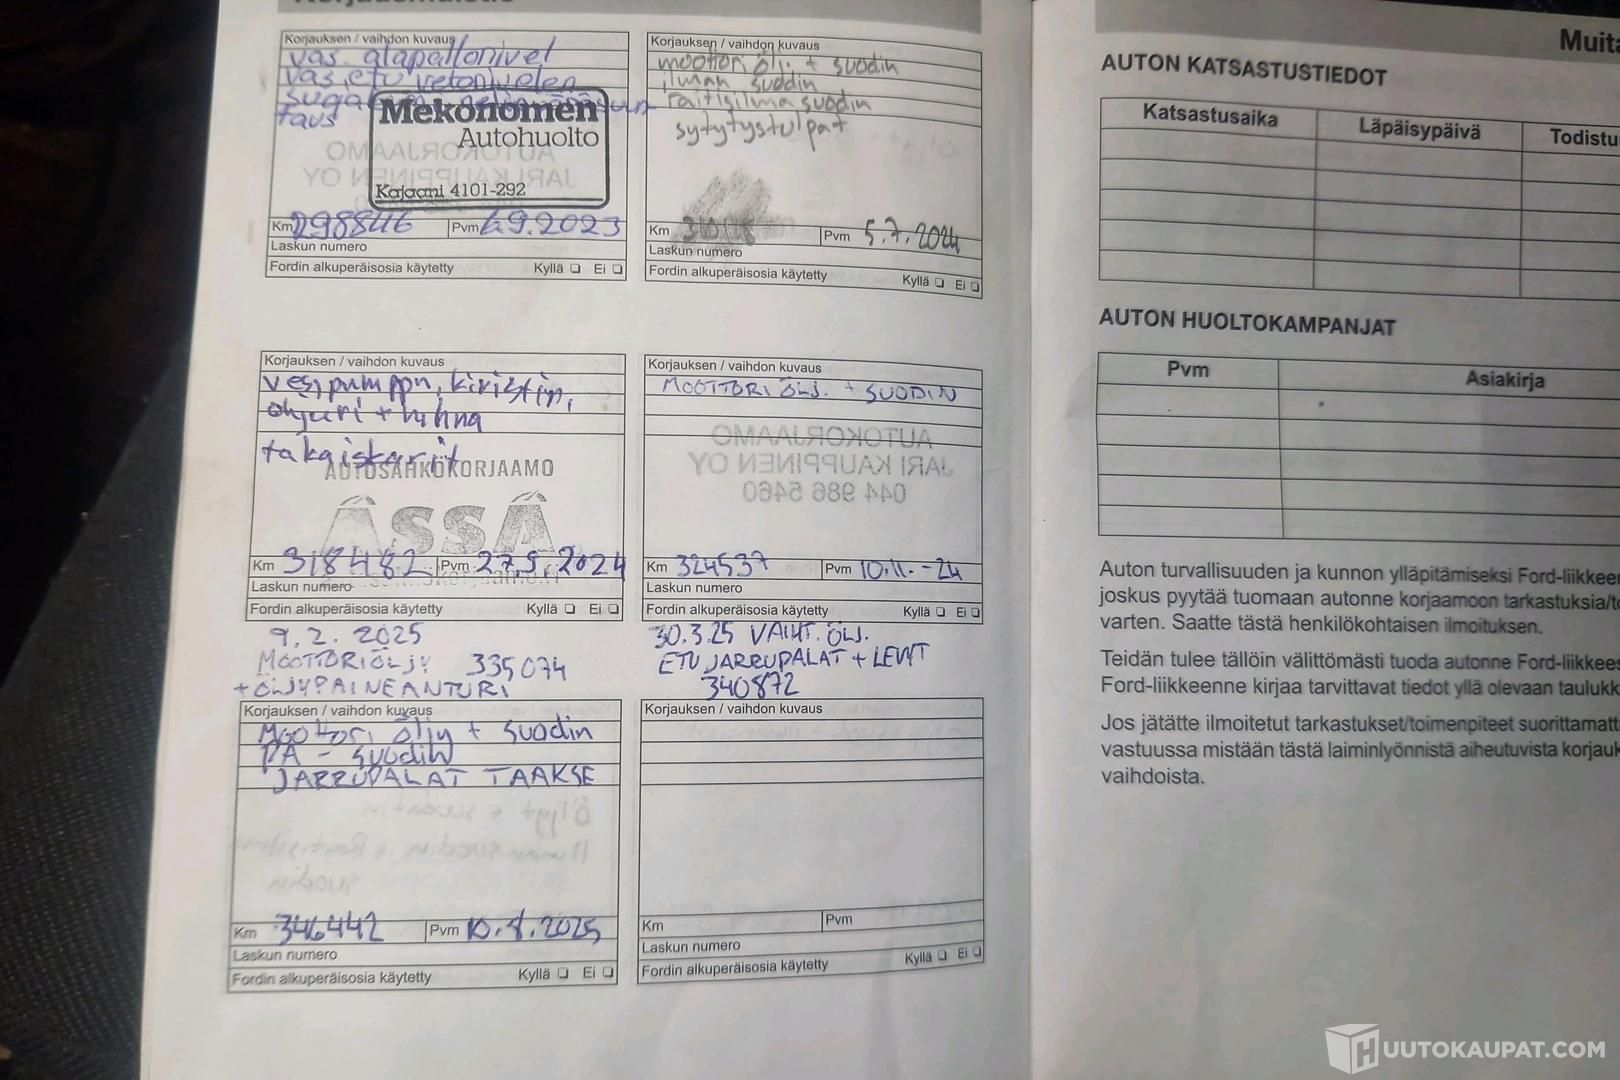 Korjauksen / vaihdon kuvaus
vas. alapallonivel
vas. etu vetonivelen
taus
Mekonomen
Autohuolto
Kajaani 4101-292
AUTOKORJAAMO
JARI KAUPPINEN OY
Km 298846 Pvm 6.9.2023
Laskun numero
Fordin alkuperäisosia käytetty Kyllä Ei
Korjauksen / vaihdon kuvaus
moottori ölj. + suodin
ilman suodin
raitisilma suodin
sytytystulpat
Km Pvm 5.7.2024
Laskun numero
Fordin alkuperäisosia käytetty Kyllä Ei
Korjauksen / vaihdon kuvaus
vesipumppu, kiristin,
ohjuri + hihna
takaiskarit
AUTOSÄHKÖKORJAAMO
ÄSSÄ
Km 318482 Pvm 27.9.2024
Laskun numero
Fordin alkuperäisosia käytetty Kyllä Ei
Korjauksen / vaihdon kuvaus
MOOTTORI ÖLJ. + SUODIN
AUTOKORJAAMO
JARI KAUPPINEN OY
044 986 5460
Km 324537 Pvm 10.11.-24
Laskun numero
Fordin alkuperäisosia käytetty Kyllä Ei
9.2.2025
MOOTTORIÖLJY 335074
+ ÖLJYPAINEANTURI
30.3.25 VAIHT. ÖLJ.
ETUJARRUPALAT + LEVYT
340872
Korjauksen / vaihdon kuvaus
Moottori öljy + suodin
PA - suodin
JARRUPALAT TAAKSE
Km 346442 Pvm 10.8.2025
Laskun numero
Fordin alkuperäisosia käytetty Kyllä Ei
Korjauksen / vaihdon kuvaus
Km Pvm
Laskun numero
Fordin alkuperäisosia käytetty Kyllä Ei
Muita
AUTON KATSASTUSTIEDOT
Katsastusaika Läpäisypäivä Todistu
AUTON HUOLTOKAMPANJAT
Pvm Asiakirja
Auton turvallisuuden ja kunnon ylläpitämiseksi Ford-liikkeen
joskus pyytää tuomaan autonne korjaamoon tarkastuksia/to
varten. Saatte tästä henkilökohtaisen ilmoituksen.
Teidän tulee tällöin välittömästi tuoda autonne Ford-liikkees
Ford-liikkeenne kirjaa tarvittavat tiedot yllä olevaan taulukk
Jos jätätte ilmoitetut tarkastukset/toimenpiteet suorittamatt
vastuussa mistään tästä laiminlyönnistä aiheutuvista korjauk
vaihdoista.
HUUTOKAUPAT.COM